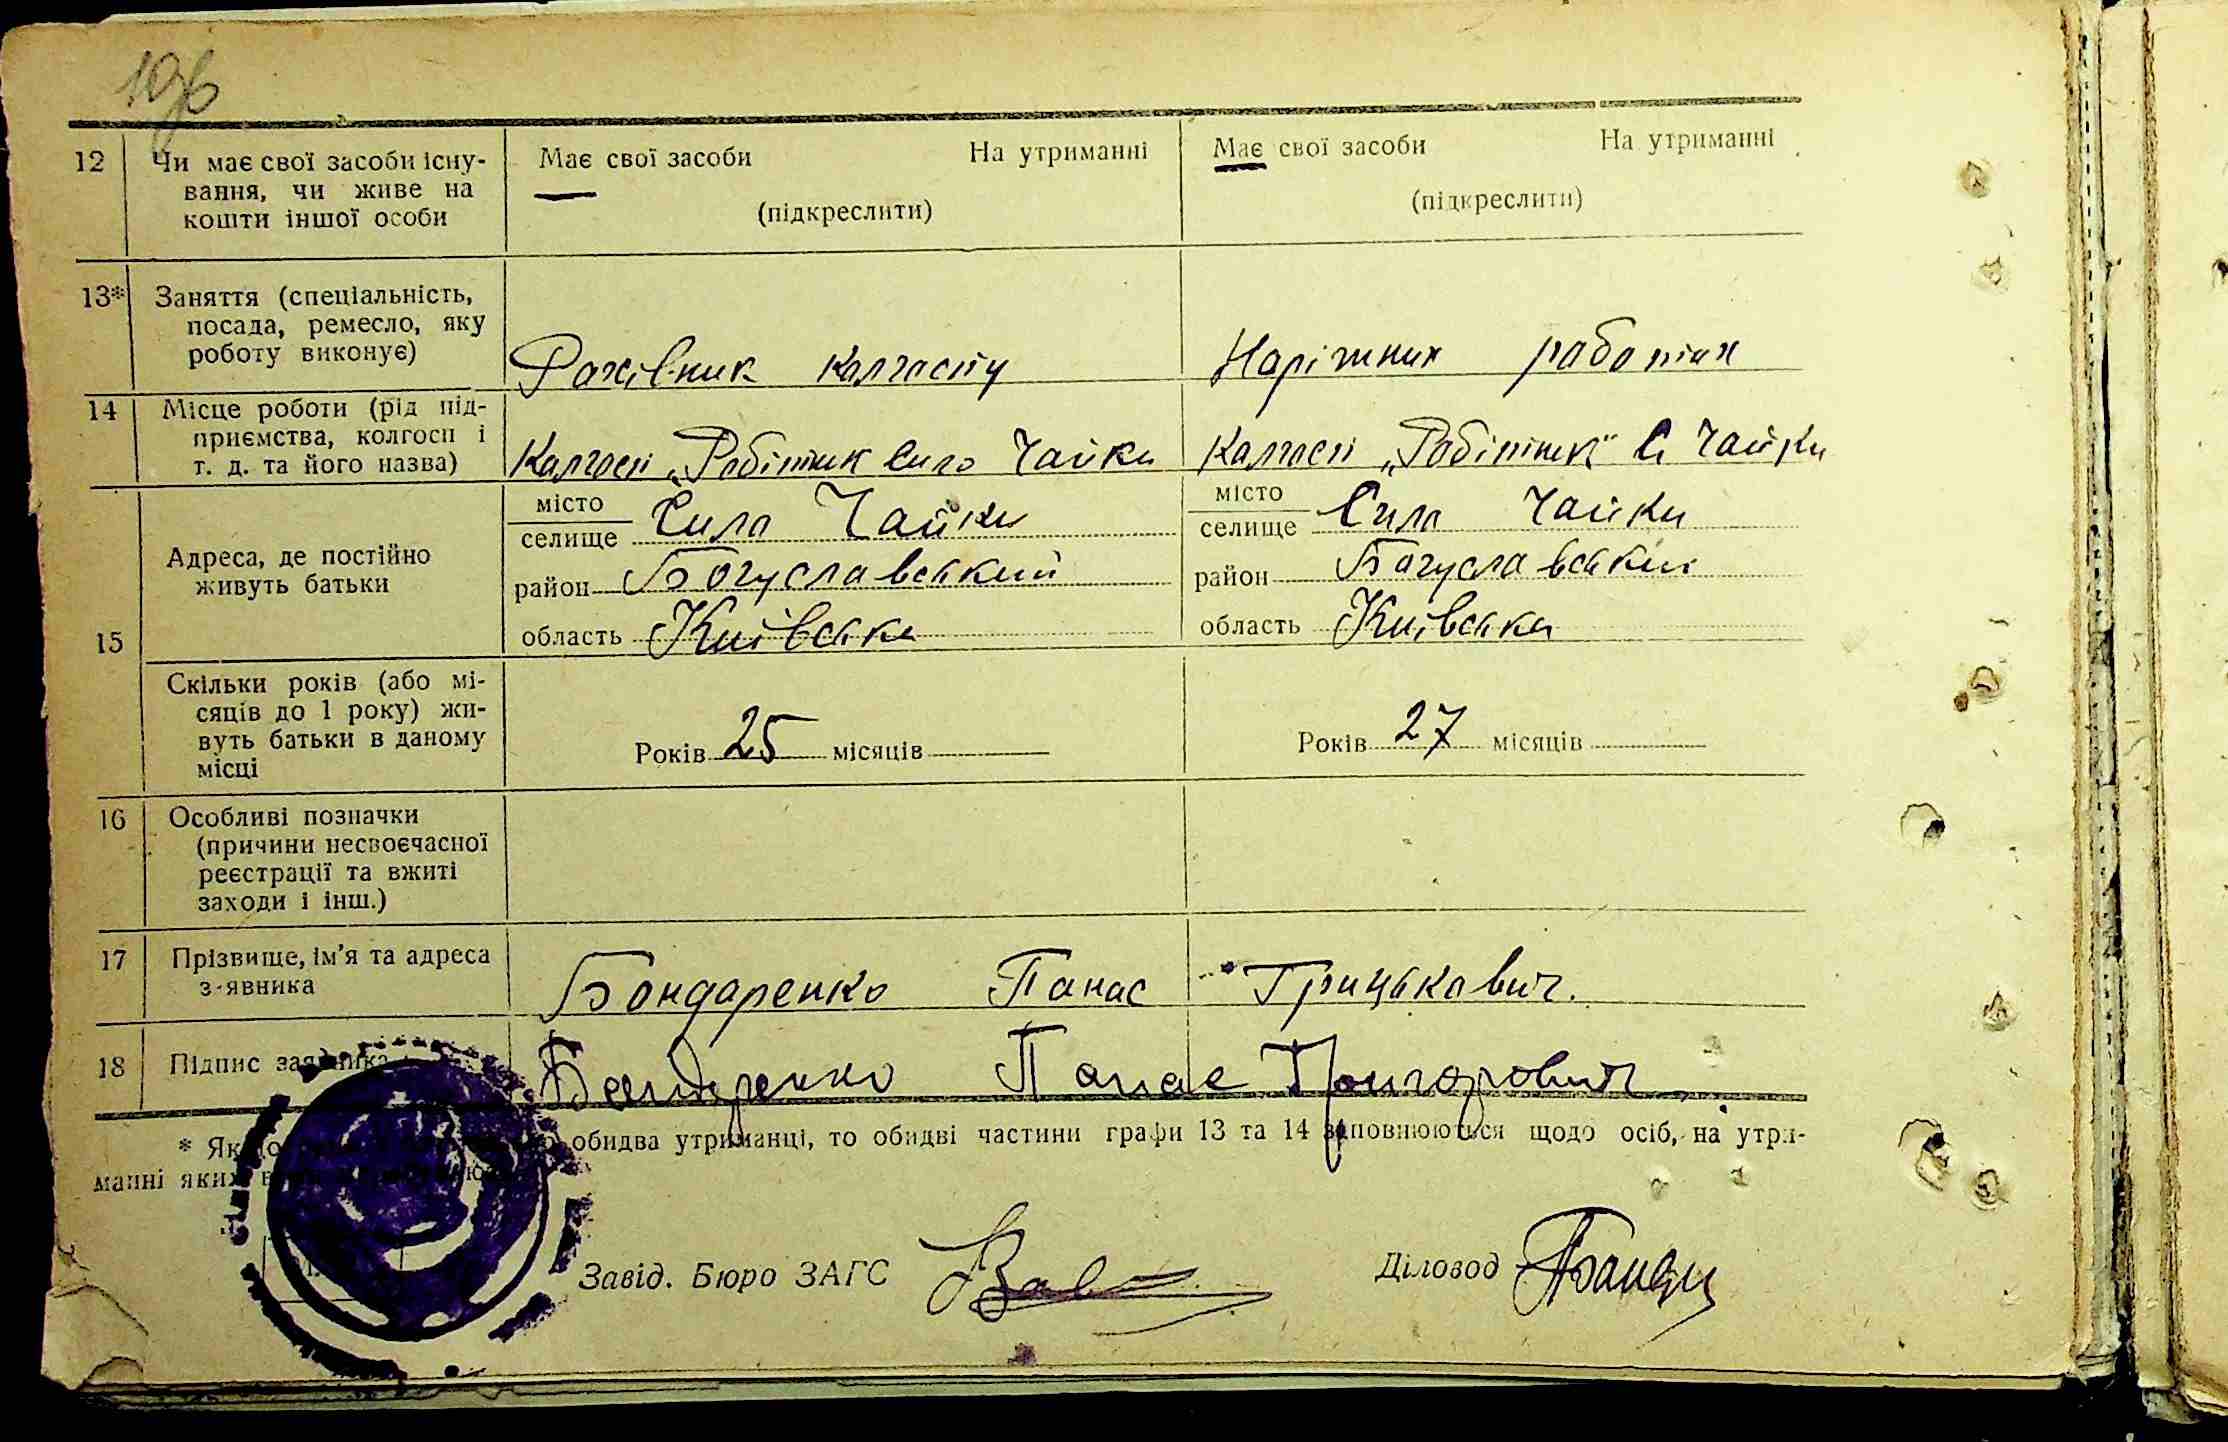 12 Чи має свої засоби існу-
вання, чи живе на
кошти іншої особи
Має свої засоби На утриманні
(підкреслити)
Має свої засоби На утриманні
(підкреслити)
13* Заняття (спеціальність,
посада, ремесло, яку
роботу виконує)
Рахівник калгоспу
Наріжних работах
14 Місце роботи (рід під-
приємства, колгосп і
т. д. та його назва)
Калгосп „Робітник Сило Чайки
Калгосп „Робітник" С Чайки
15 Адреса, де постійно
живуть батьки
місто
селище Сило Чайки
район Богуславський
область Київська
місто
селище Сило Чайки
район Багуславський
область Київська
Скільки років (або мі-
сяців до 1 року) жи-
вуть батьки в даному
місці
Років 25 місяців
Років 27 місяців
16 Особливі позначки
(причини несвоєчасної
реєстрації та вжиті
заходи і інш.)
17 Прізвище, ім'я та адреса
з-явника
Бондаренко Панас Грицькович.
18 Підпис заявника
Бандренко Панас Григорович
обидва утриманці, то обидві частини графи 13 та 14 заповнюються щодо осіб, на утри-
манні яких
Завід. Бюро ЗАГС Діловод